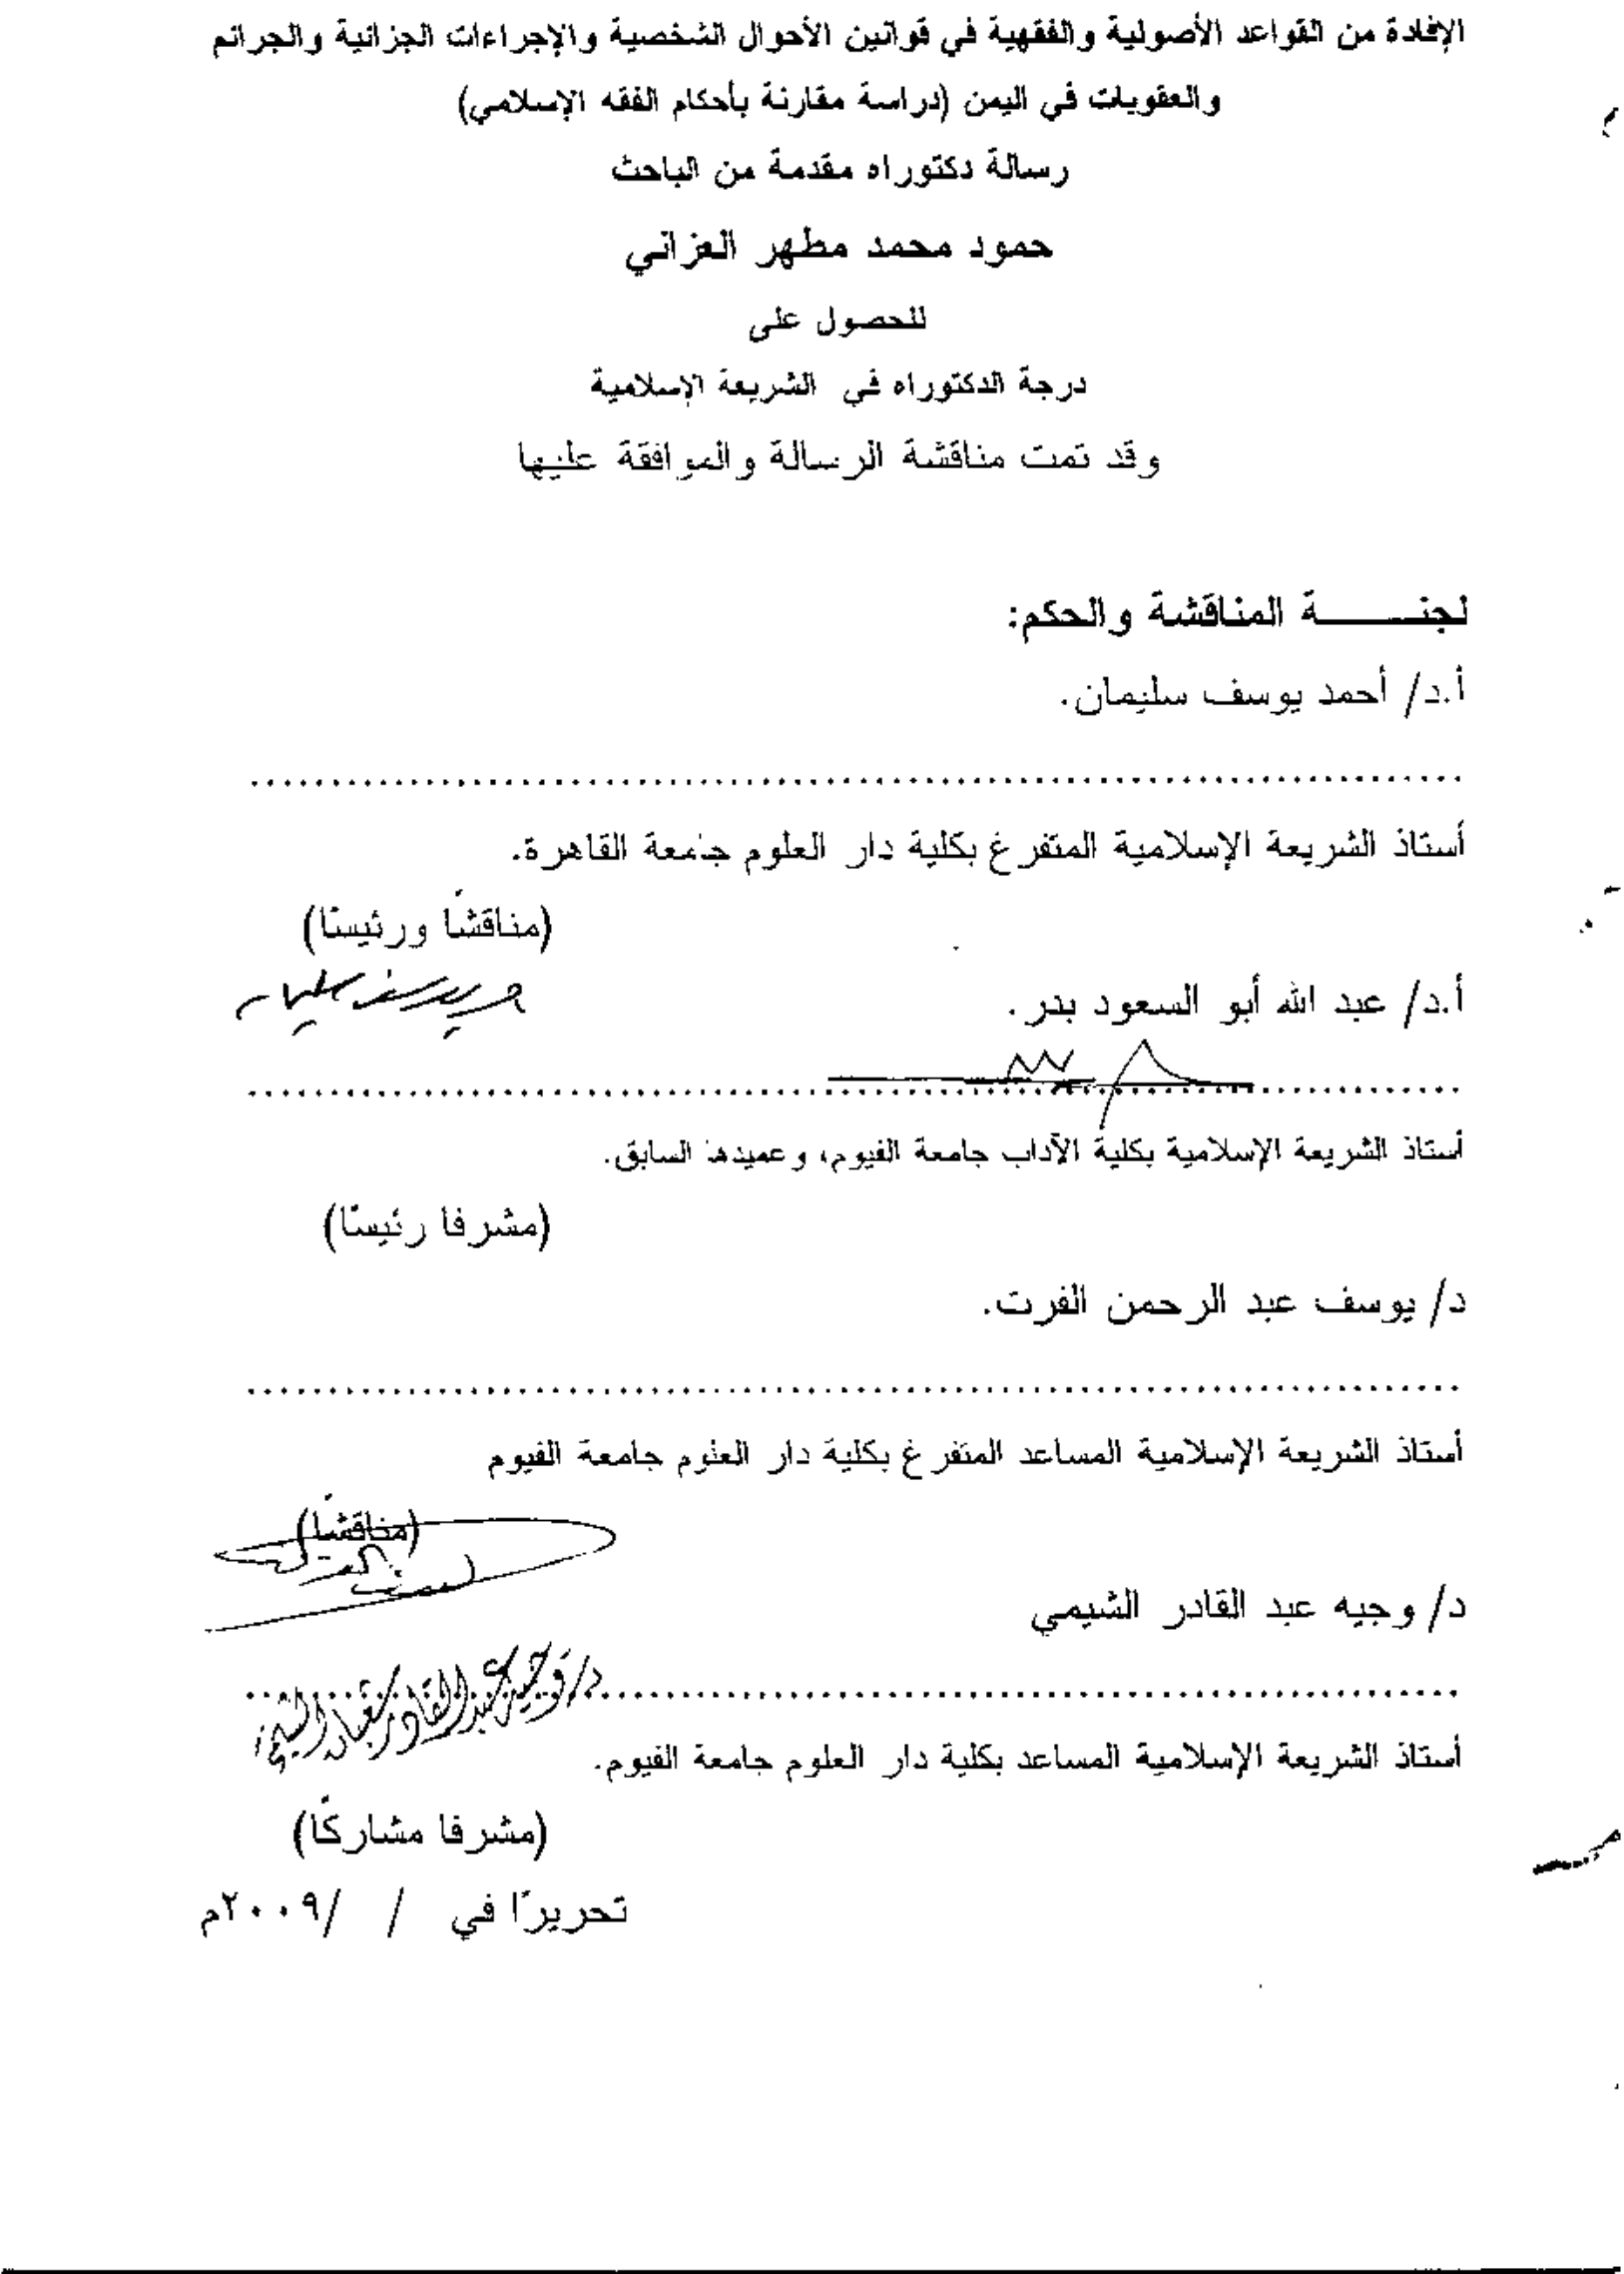 الإفادة من القواعد الأصولية والفقهية في قوانين الأحوال الشخصية والإجراءات الجزائية والجرائم
والعقوبات في اليمن (دراسة مقارنة بأحكام الفقه الإسلامي)
رسالة دكتوراه مقدمة من الباحث
حمود محمد مطهر العزاني
للحصول على
درجة الدكتوراه في الشريعة الإسلامية
وقد تمت مناقشة الرسالة والموافقة عليها
لجنـــــــة المناقشة والحكم:
أ.د/ أحمد يوسف سليمان.
................................................................................
أستاذ الشريعة الإسلامية المتفرغ بكلية دار العلوم جامعة القاهرة.
(مناقشًا ورئيسًا)
أ.د/ عبد الله أبو السعود بدر.
................................................................................
أستاذ الشريعة الإسلامية بكلية الآداب جامعة الفيوم، وعميدها السابق.
(مشرفا رئيسًا)
د/ يوسف عبد الرحمن الفرت.
................................................................................
أستاذ الشريعة الإسلامية المساعد المتفرغ بكلية دار العلوم جامعة الفيوم
(مناقشًا)
د/ وجيه عبد القادر الشيمي
................................................................................
د/ وجيه عبد القادر شعبان الشيمي
أستاذ الشريعة الإسلامية المساعد بكلية دار العلوم جامعة الفيوم.
(مشرفا مشاركًا)
تحريرًا في / /٢٠٠٩م